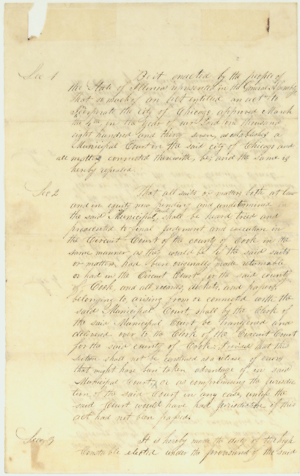 Sec 1 Be it enacted by the people of
the State of Illinois represented in the General Assembly
That so much of an Act entitled an act to
incorporate the City of Chicago approved March
the 4th in the year of our Lord one thousand
eight hundred and thirty seven as establishes a
Municipal Court in the said city of Chicago and
all matters connected therewith, be and the same is
hereby repealed.
Sec 2 That all suits or matters both at law
and in equity now pending and undetermined
the said Municipal shall be heard tried and
prosecuted to final judgment and execution in
the Circuit Court of the county of Cook in the
same manner as they would be if the said suits
or matters had been originally made returnable
or had in the Circuit Court for the said county
of Cook and all records dockets and papers
belonging to arising from or connected with the
said Municipal Court, shall by the Clerk of
the said Municipal Court be transferred and
delivered over to the Clerk of the Circuit Court
for the said county of Cook Provided that this
section shall not be construed as a waiver of errors
that might have been taken advantage of in said
Municipal Court or as complaining the jurisdic
tion of the said Court in any case, unless the
said Court would have had jurisdiction if this
act has not been passed.
Sec 3 It is hereby made the duty of the high
Constable elected under the provisions of the said